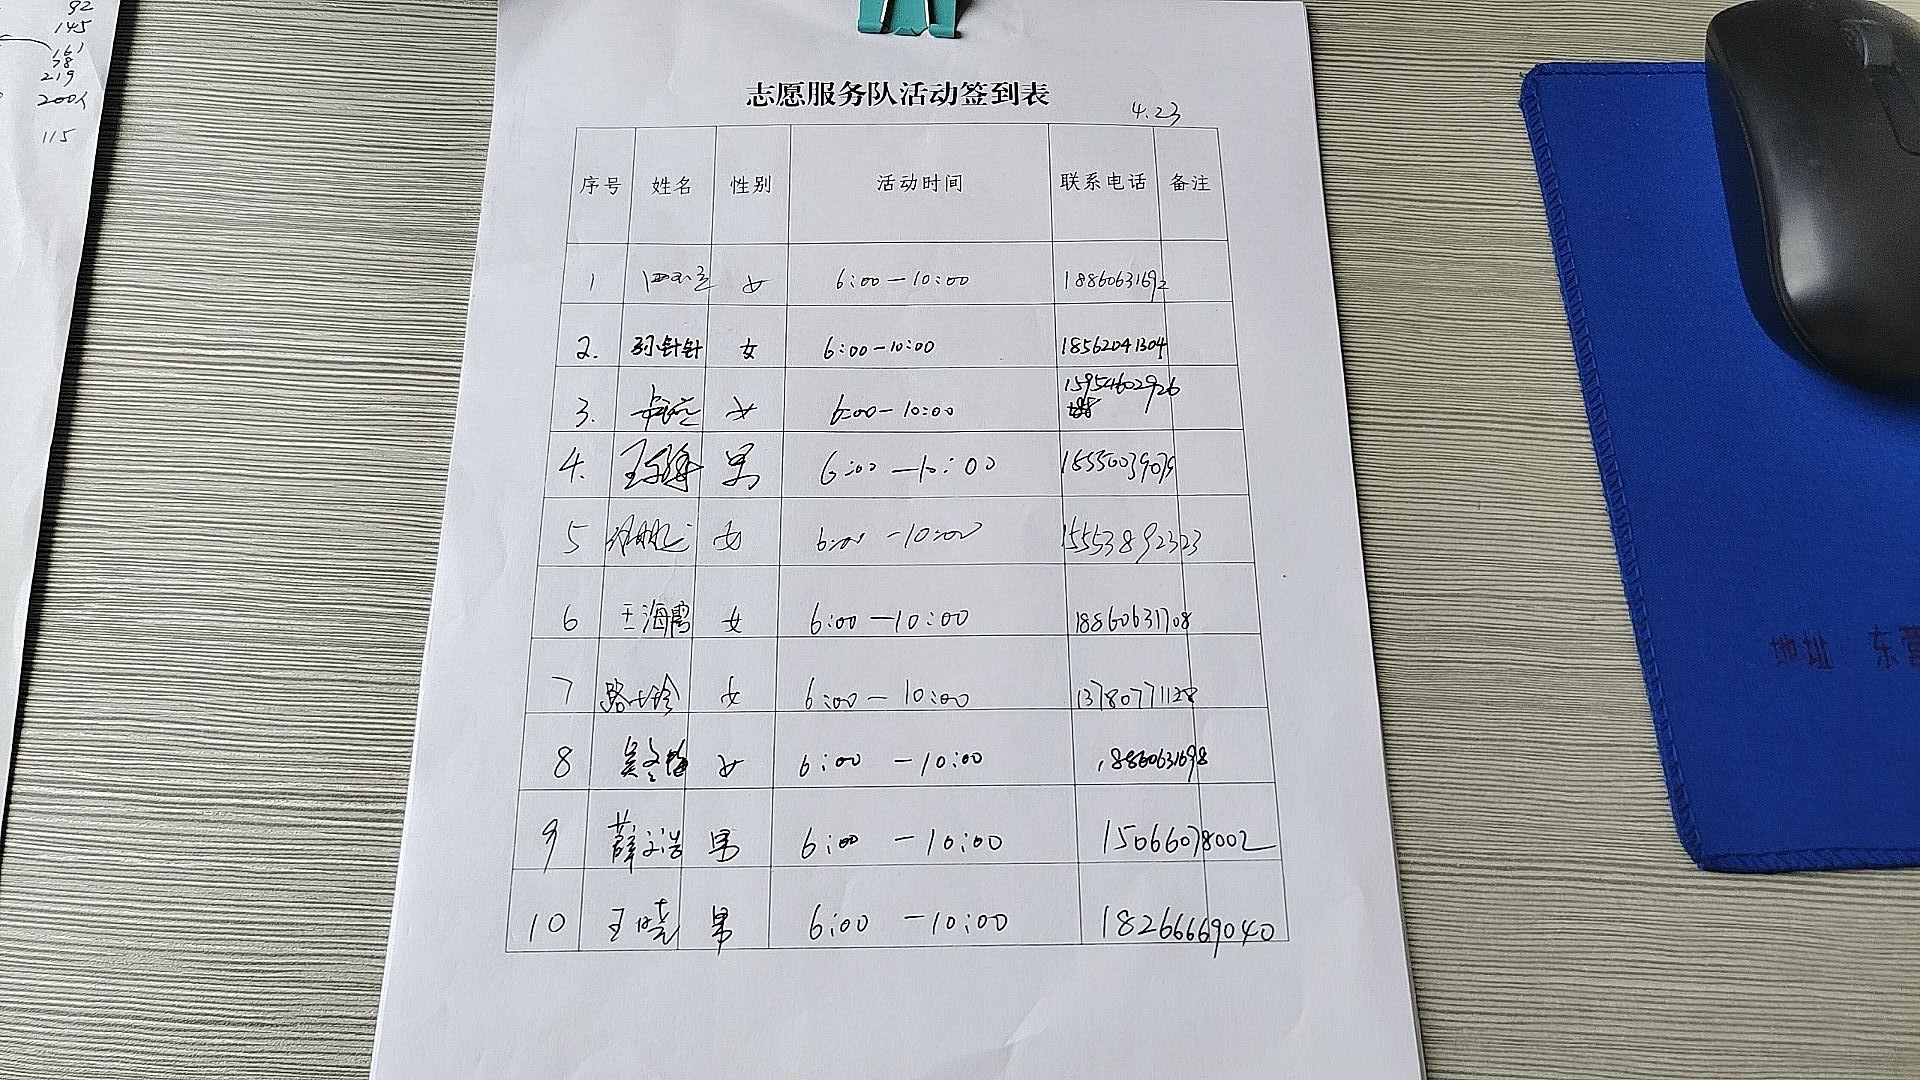 92
145
161
38
219
200人
115
志愿服务队活动签到表
4.23
序号 姓名 性别 活动时间 联系电话 备注
1 女 6:00—10:00 18860631692
2. 孙针针 女 6:00—10:00 18562041304
3. 女 6:00—10:00 15954602926
4. 男 6:00—10:00 15550039079
5 女 6:00—10:00 15553892323
6 王海霞 女 6:00—10:00 18860631708
7 路 女 6:00—10:00 13780771128
8 吴冬梅 女 6:00—10:00 18860631698
9 薛文浩 男 6:00—10:00 15066078002
10 王晓 男 6:00—10:00 18266669040
地址 东营